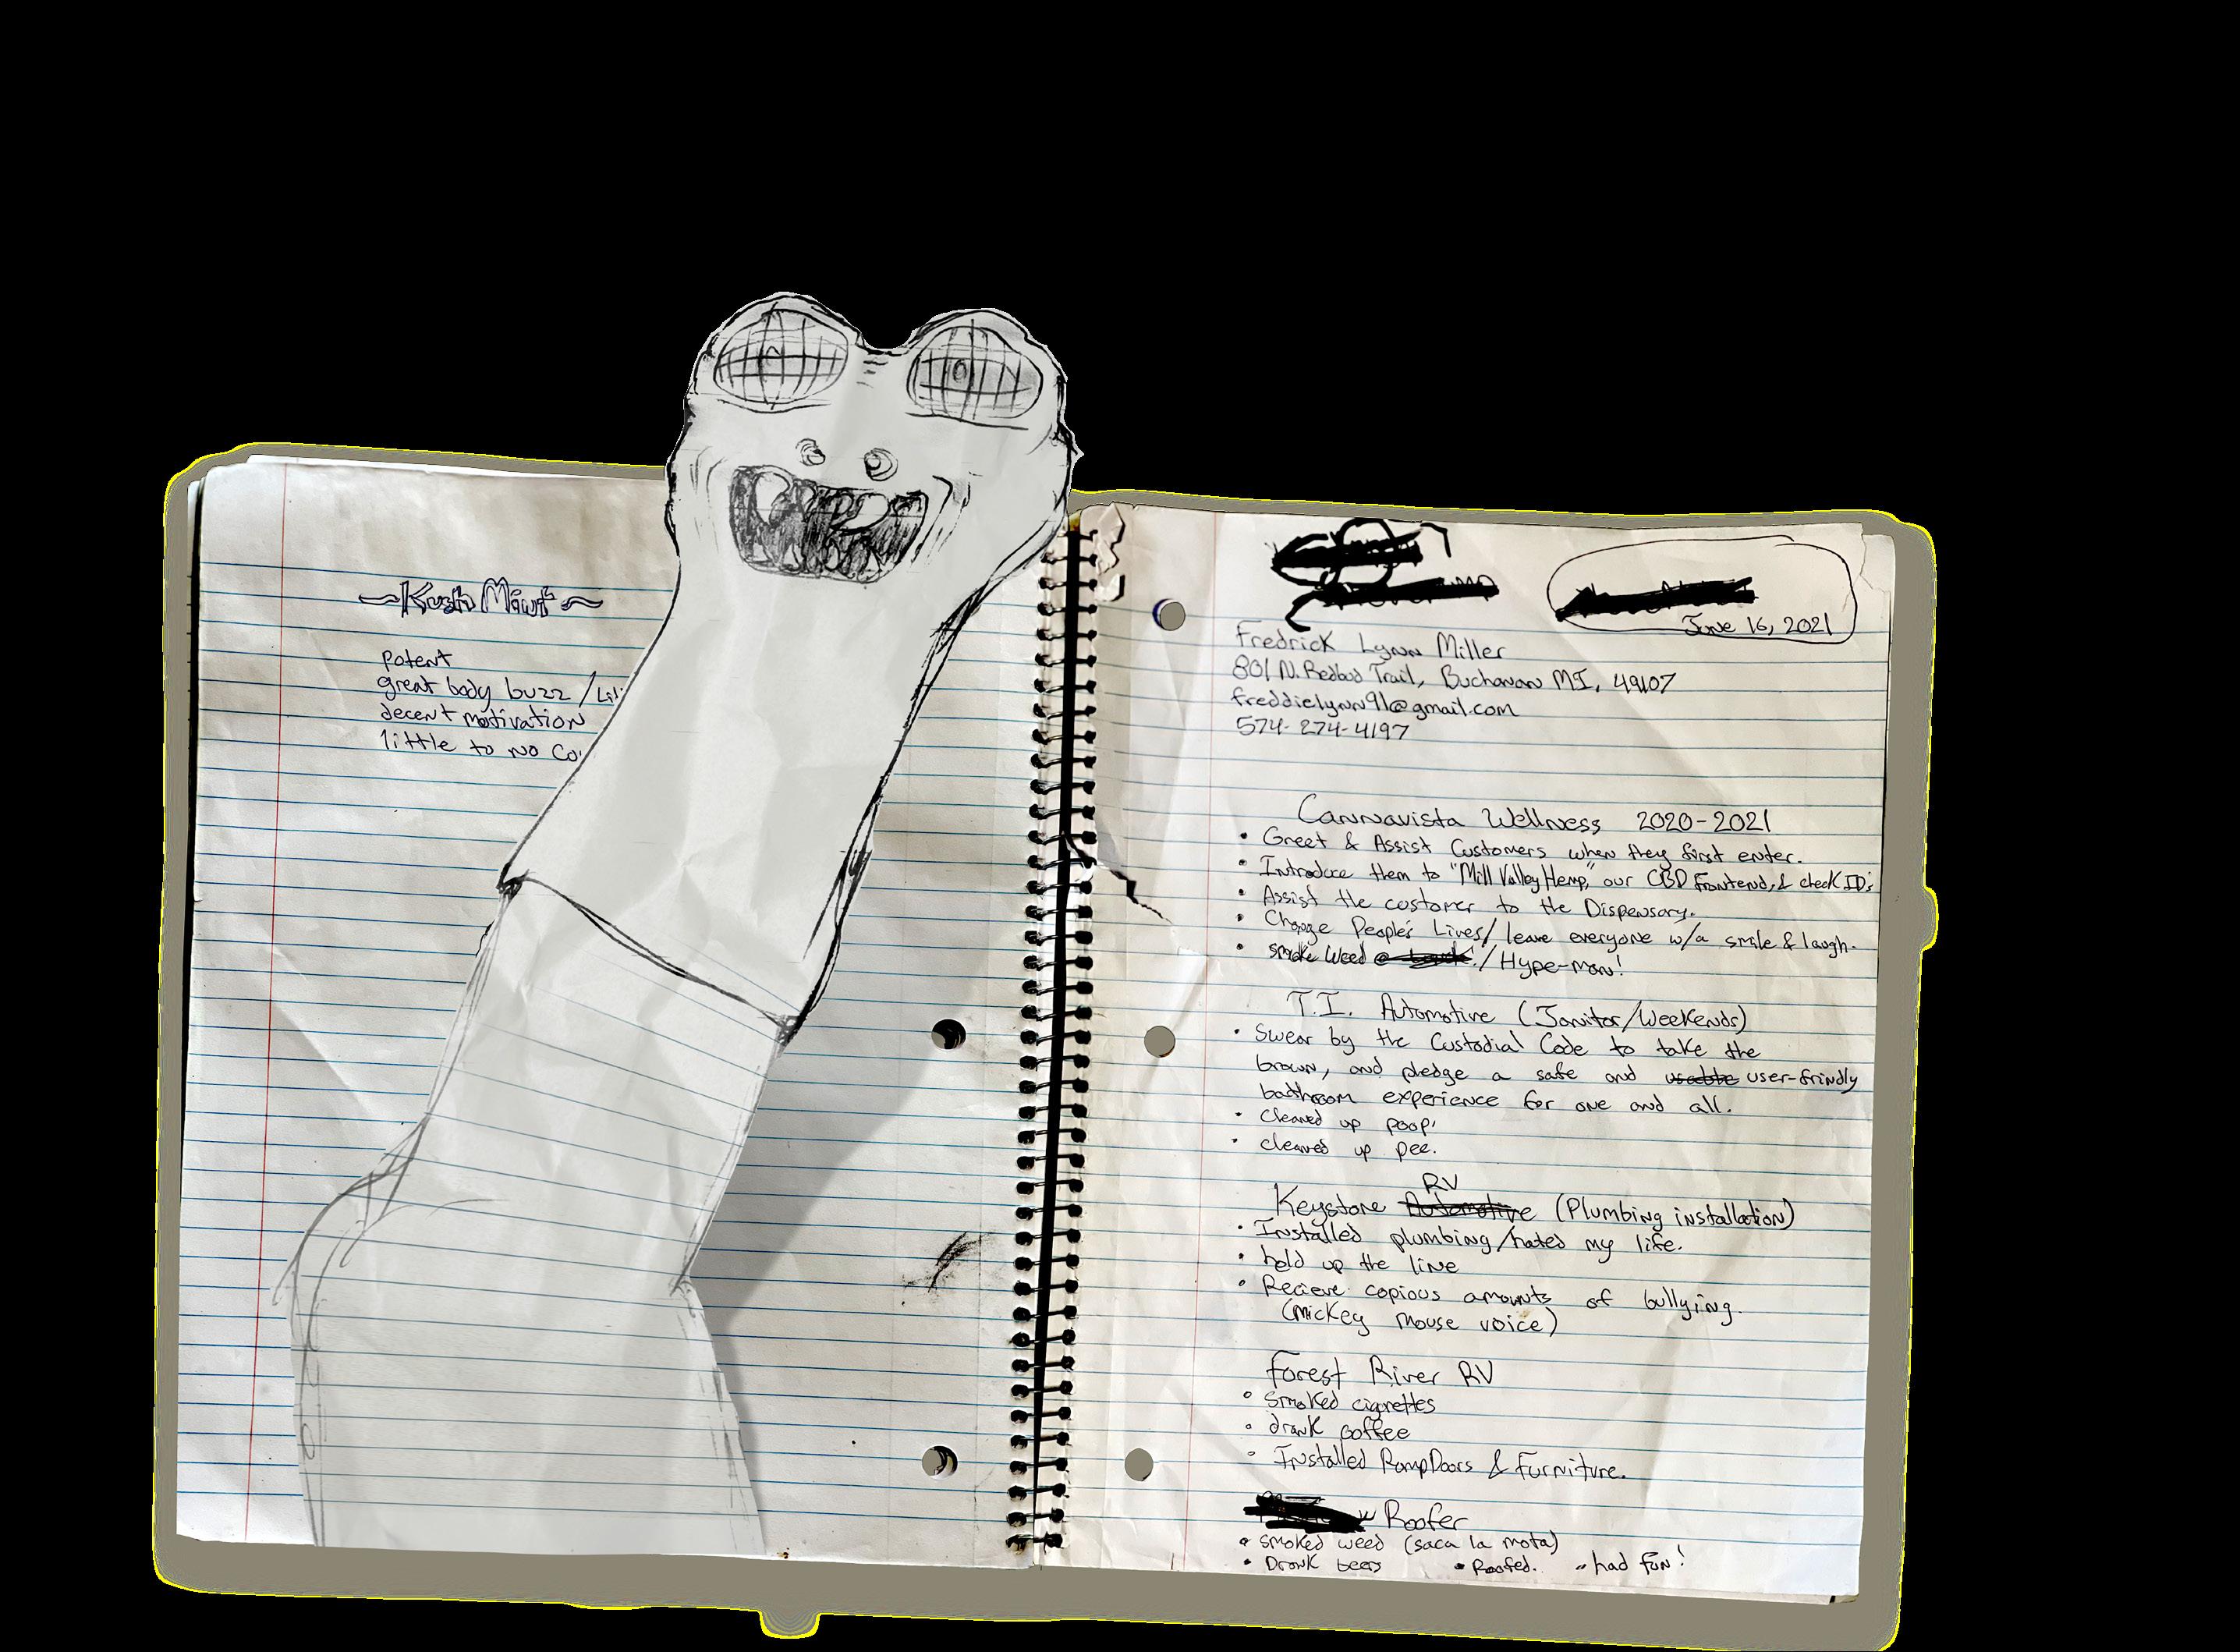 ~Kush Mint~
potent
great body buzz /
decent motivation
little to no
June 16, 2021
Fredrick Lynn Miller
801 N. Redbud Trail, Buchanan MI, 49107
freddielynn91@gmail.com
574-274-4197
Cannavista Wellness 2020-2021
• Greet & Assist Customers when they first enter.
• Introduce them to "Mill Valley Hemp," our CBD Frontend, & check ID's
• Assist the customer to the Dispensary.
• Change People's Lives/ leave everyone w/a smile & laugh.
• smoke weed / Hype-man!
T.I. Automotive (Janitor/Weekends)
• Swear by the Custodial Code to take the
brown, and pledge a safe and usable user-frindly
bathroom experience for one and all.
• Cleaned up poop,
• cleaned up pee.
RV
Keystone Automotive (Plumbing installation)
• Installed plumbing/hated my life.
• hold up the line
• Recieve copious amounts of bullying.
(mickey mouse voice)
Forest River RV
• smoked cigrettes
• drank coffee
• Installed Ramp Doors & Furniture.
Roofer
• smoked weed (saca la mota)
• Drank beers • Roofed. • had fun!